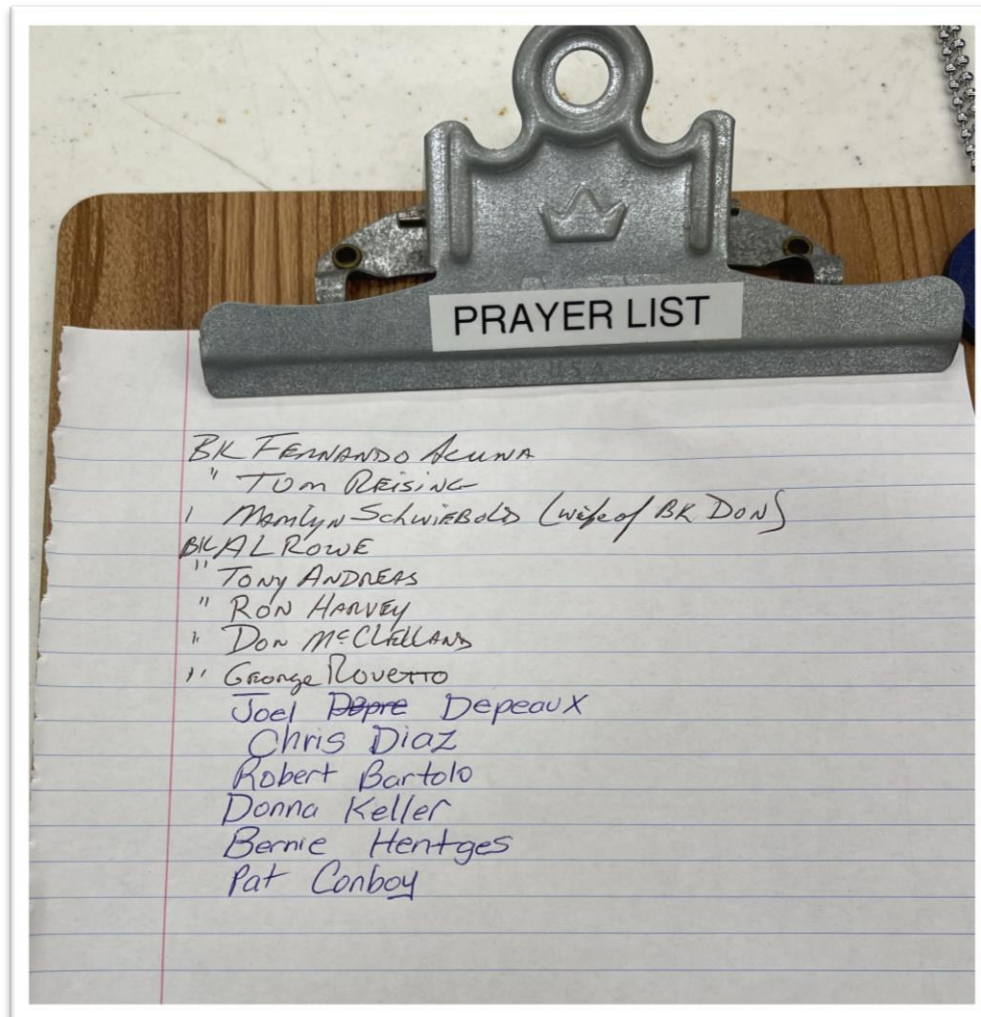 PRAYER LIST
USA
BK FERNANDO ACUNA
" TOM REISING
" MARILYN SCHWIEBOLD (wife of BK DON)
BK AL ROWE
" TONY ANDREAS
" RON HARVEY
" DON McCLELLAND
" GEORGE ROVETTO
Joel Depre Depeaux
Chris Diaz
Robert Bartolo
Donna Keller
Bernie Hentges
Pat Conboy